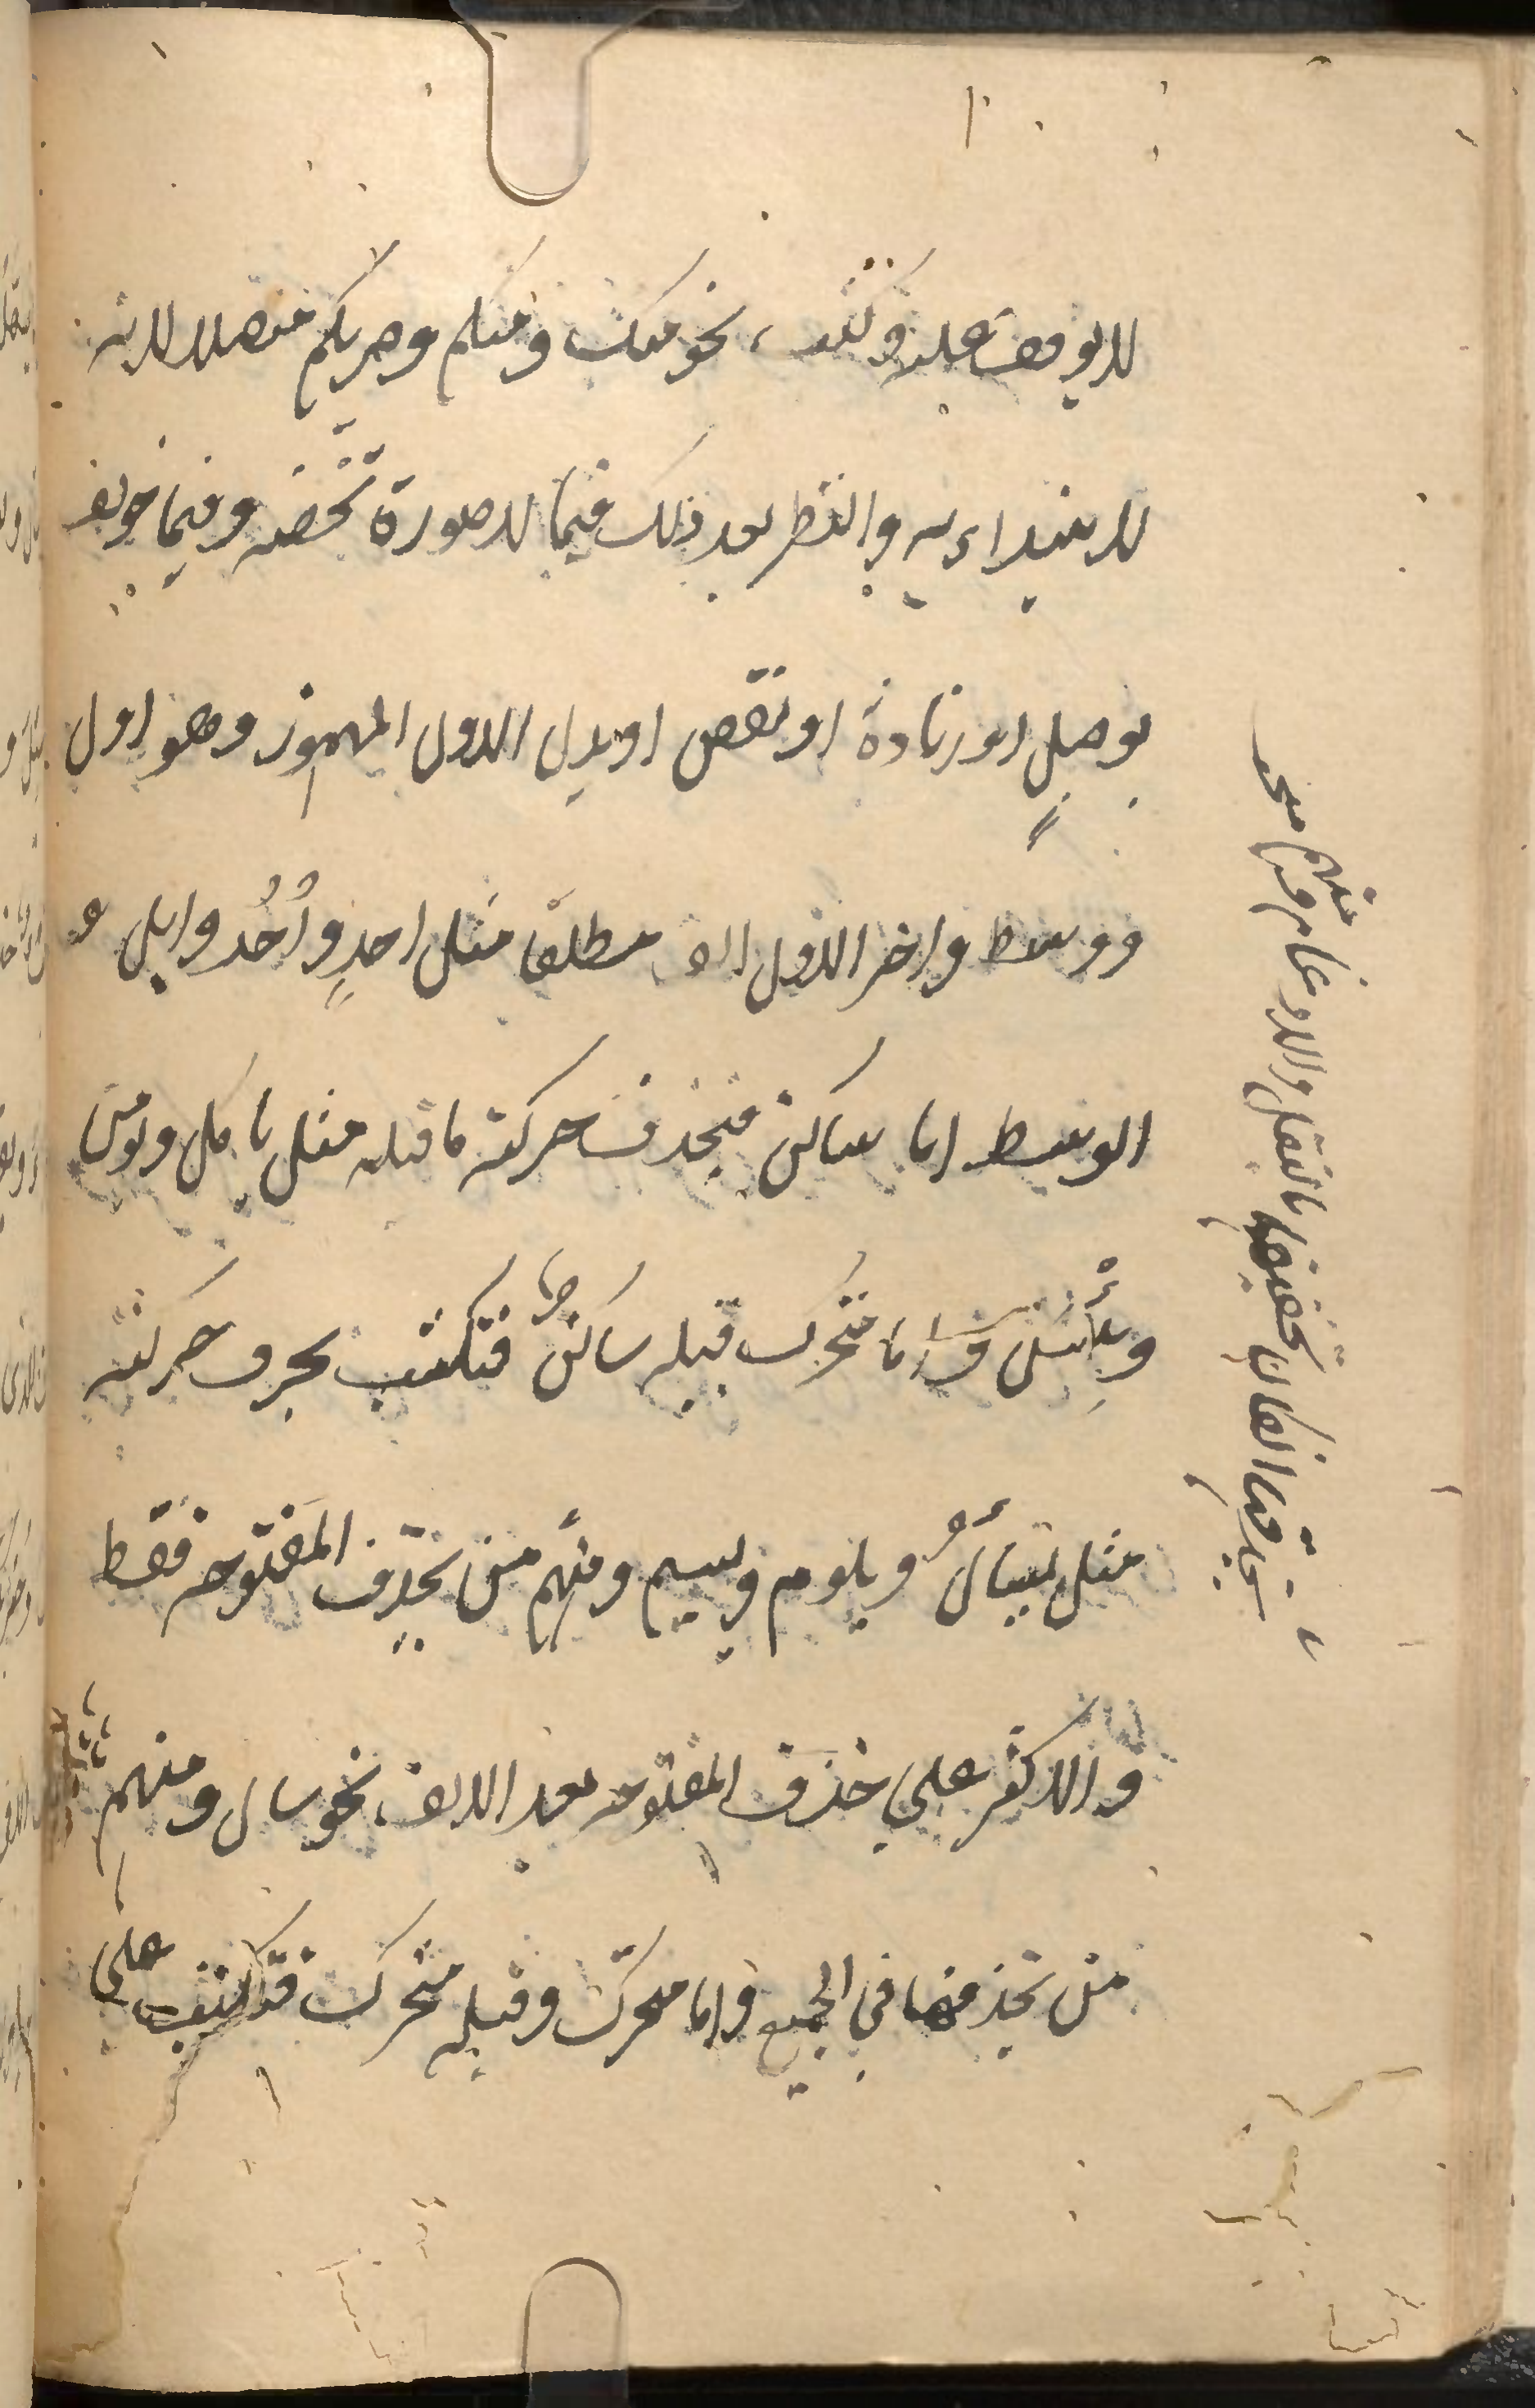 لا يوقف عليه وكتب نحو منك ومنكم وضربكم متصلا لانه
لا يبتدا به والنظر بعد ذلك فيما لا صورة تخصه وفيما خولف
بوصلٍ او زيادة او نقص او بدل الاول المهموز وهو اول
ووسط واخر الاول الف مطلقا مثل احدٍ واُحُد وابل و
الوسط اما ساكن فبحرف حركة ما قبله مثل ياكل ويومن
وبِئْس واما متحرك قبله ساكن فتكتب بحرف حركته
مثل يسأل ويلوم ويسيم ومنهم من يحذف المفتوحه فقط
والاكثر على حذف المفتوحه بعد الالف نحو سال ومنهم
من يحذفها في الجميع واما متحرك وقبله متحرك فتكتب على
ان كان تخفيفها بالنقل والادغام ومنهم